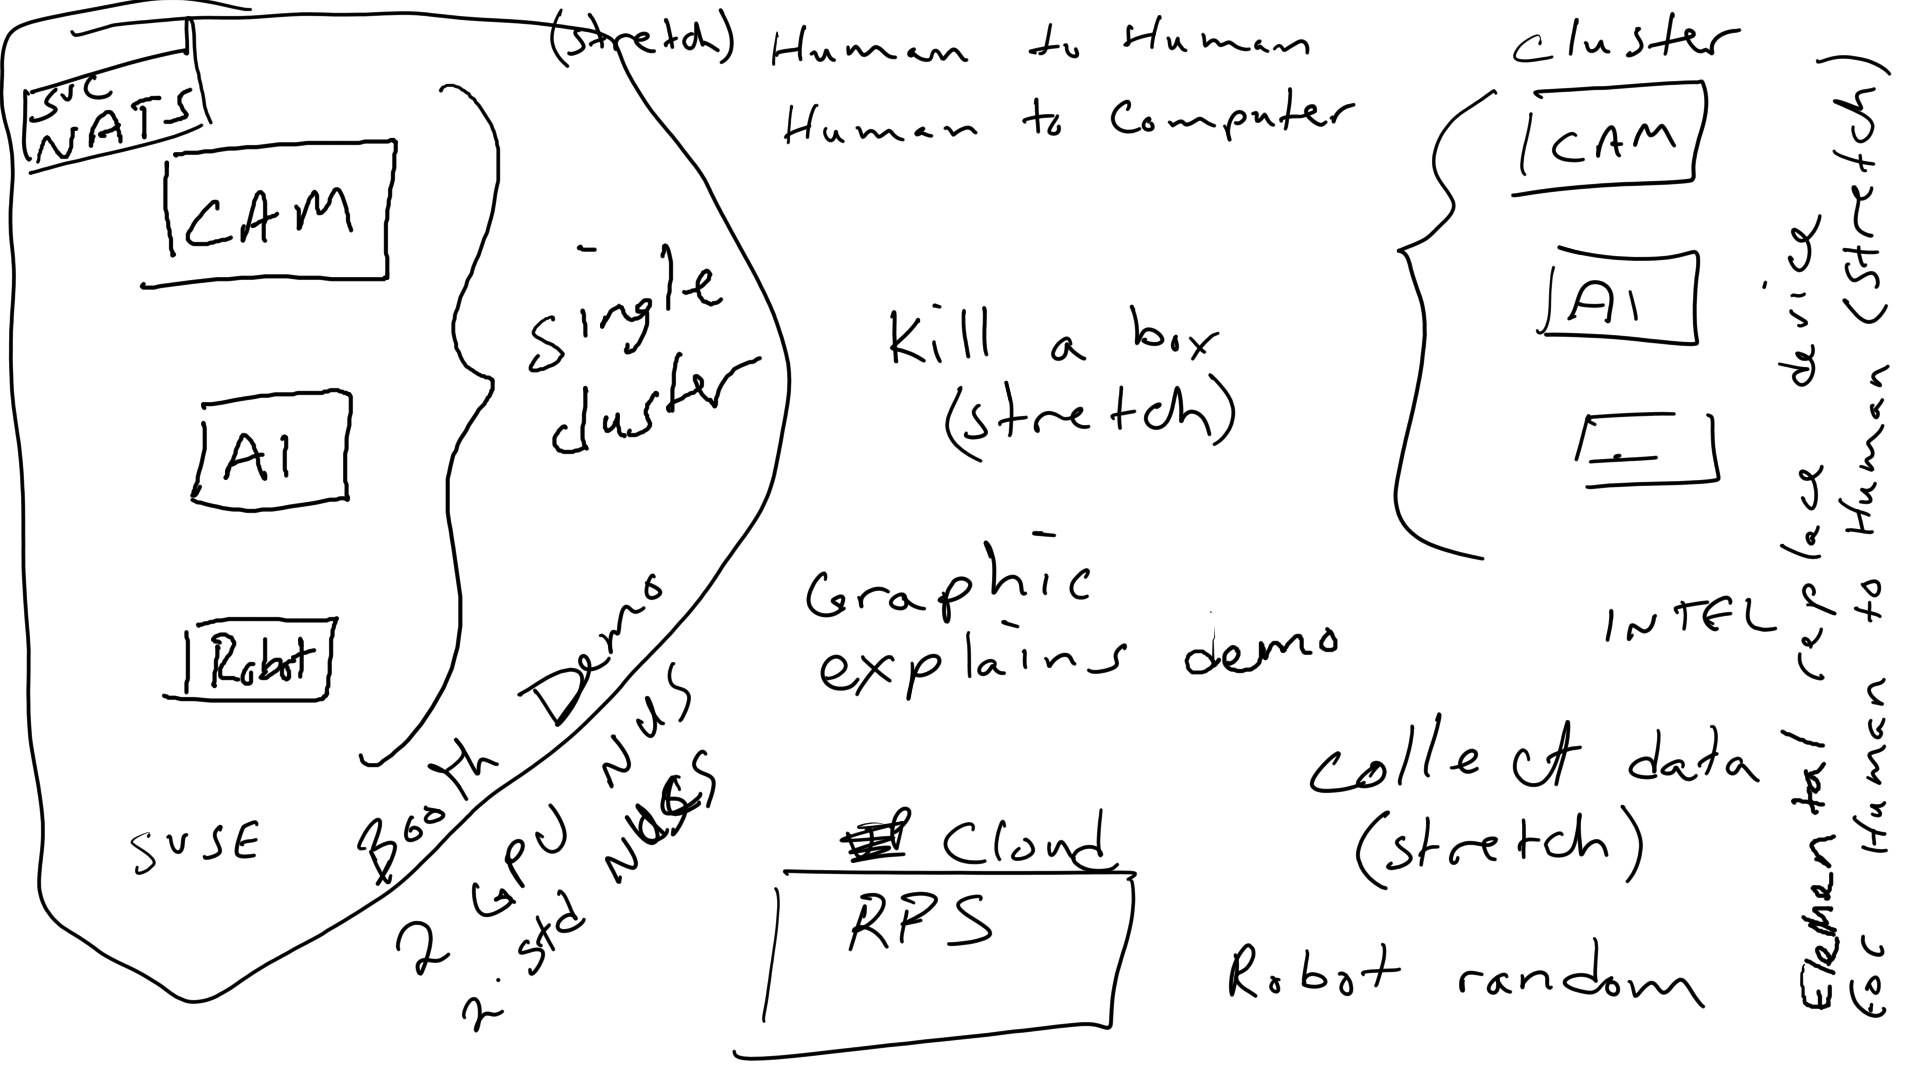 SVC
NATS
CAM
AI
Robot
SUSE
single
cluster
Booth Demo
2 GPU NUS
2. std
(stretch) Human to Human
Human to Computer
Kill a box
(stretch)
Graphic
explains demo
Cloud
RPS
Cluster
CAM
AI
INTEL
Collect data
(stretch)
Robot random
Elemental replace device
for Human to Human (stretch)